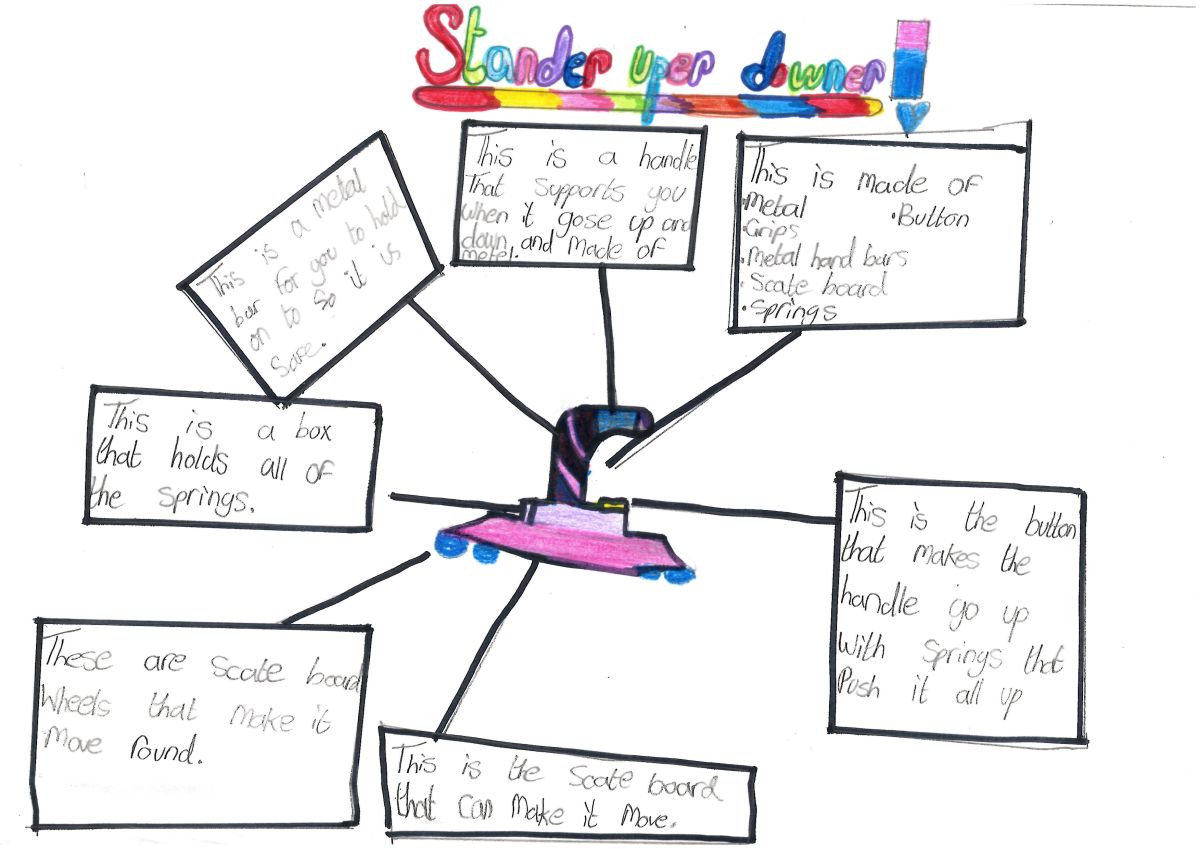 Stander uper downer!
This is a metal
bar for you to hold
on to so it is
safe.
This is a handle
That supports you
when it gose up and
down and made of
metel.
This is made of
•Metal
•Button
•Grips
•Metal hand bars
•Scate board
•Springs
This is a box
that holds all of
the springs.
This is the button
that makes the
handle go up
with springs that
Push it all up
These are scate board
wheels that make it
move round.
This is the scate board
that can make it move.